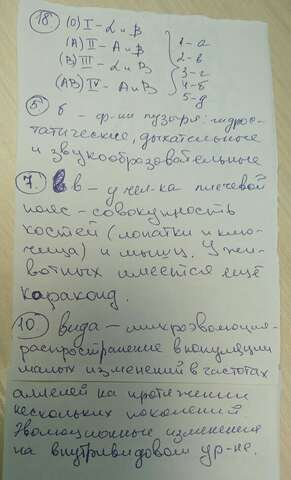 18) (0) I – α и β
(A) II – А и β
(B) III – α и В
(AB) IV – А и В
1 – а
2 – в
3 – г
4 – б
5 – д
5) б – ф-ии пузыря: гидрос-
татические, дыхательные
и звукообразовательные
7. в – у чел-ка плечевой
пояс – совокупность
костей (лопатки и клю-
чица) и мышц. У жи-
вотных имеется ещё
коракоид.
10) вида – микроэволюция –
распространение в популяции
малых изменений в частотах
аллелей на протяжении
нескольких поколений
Эволюционные изменения
на внутривидовом ур-не.